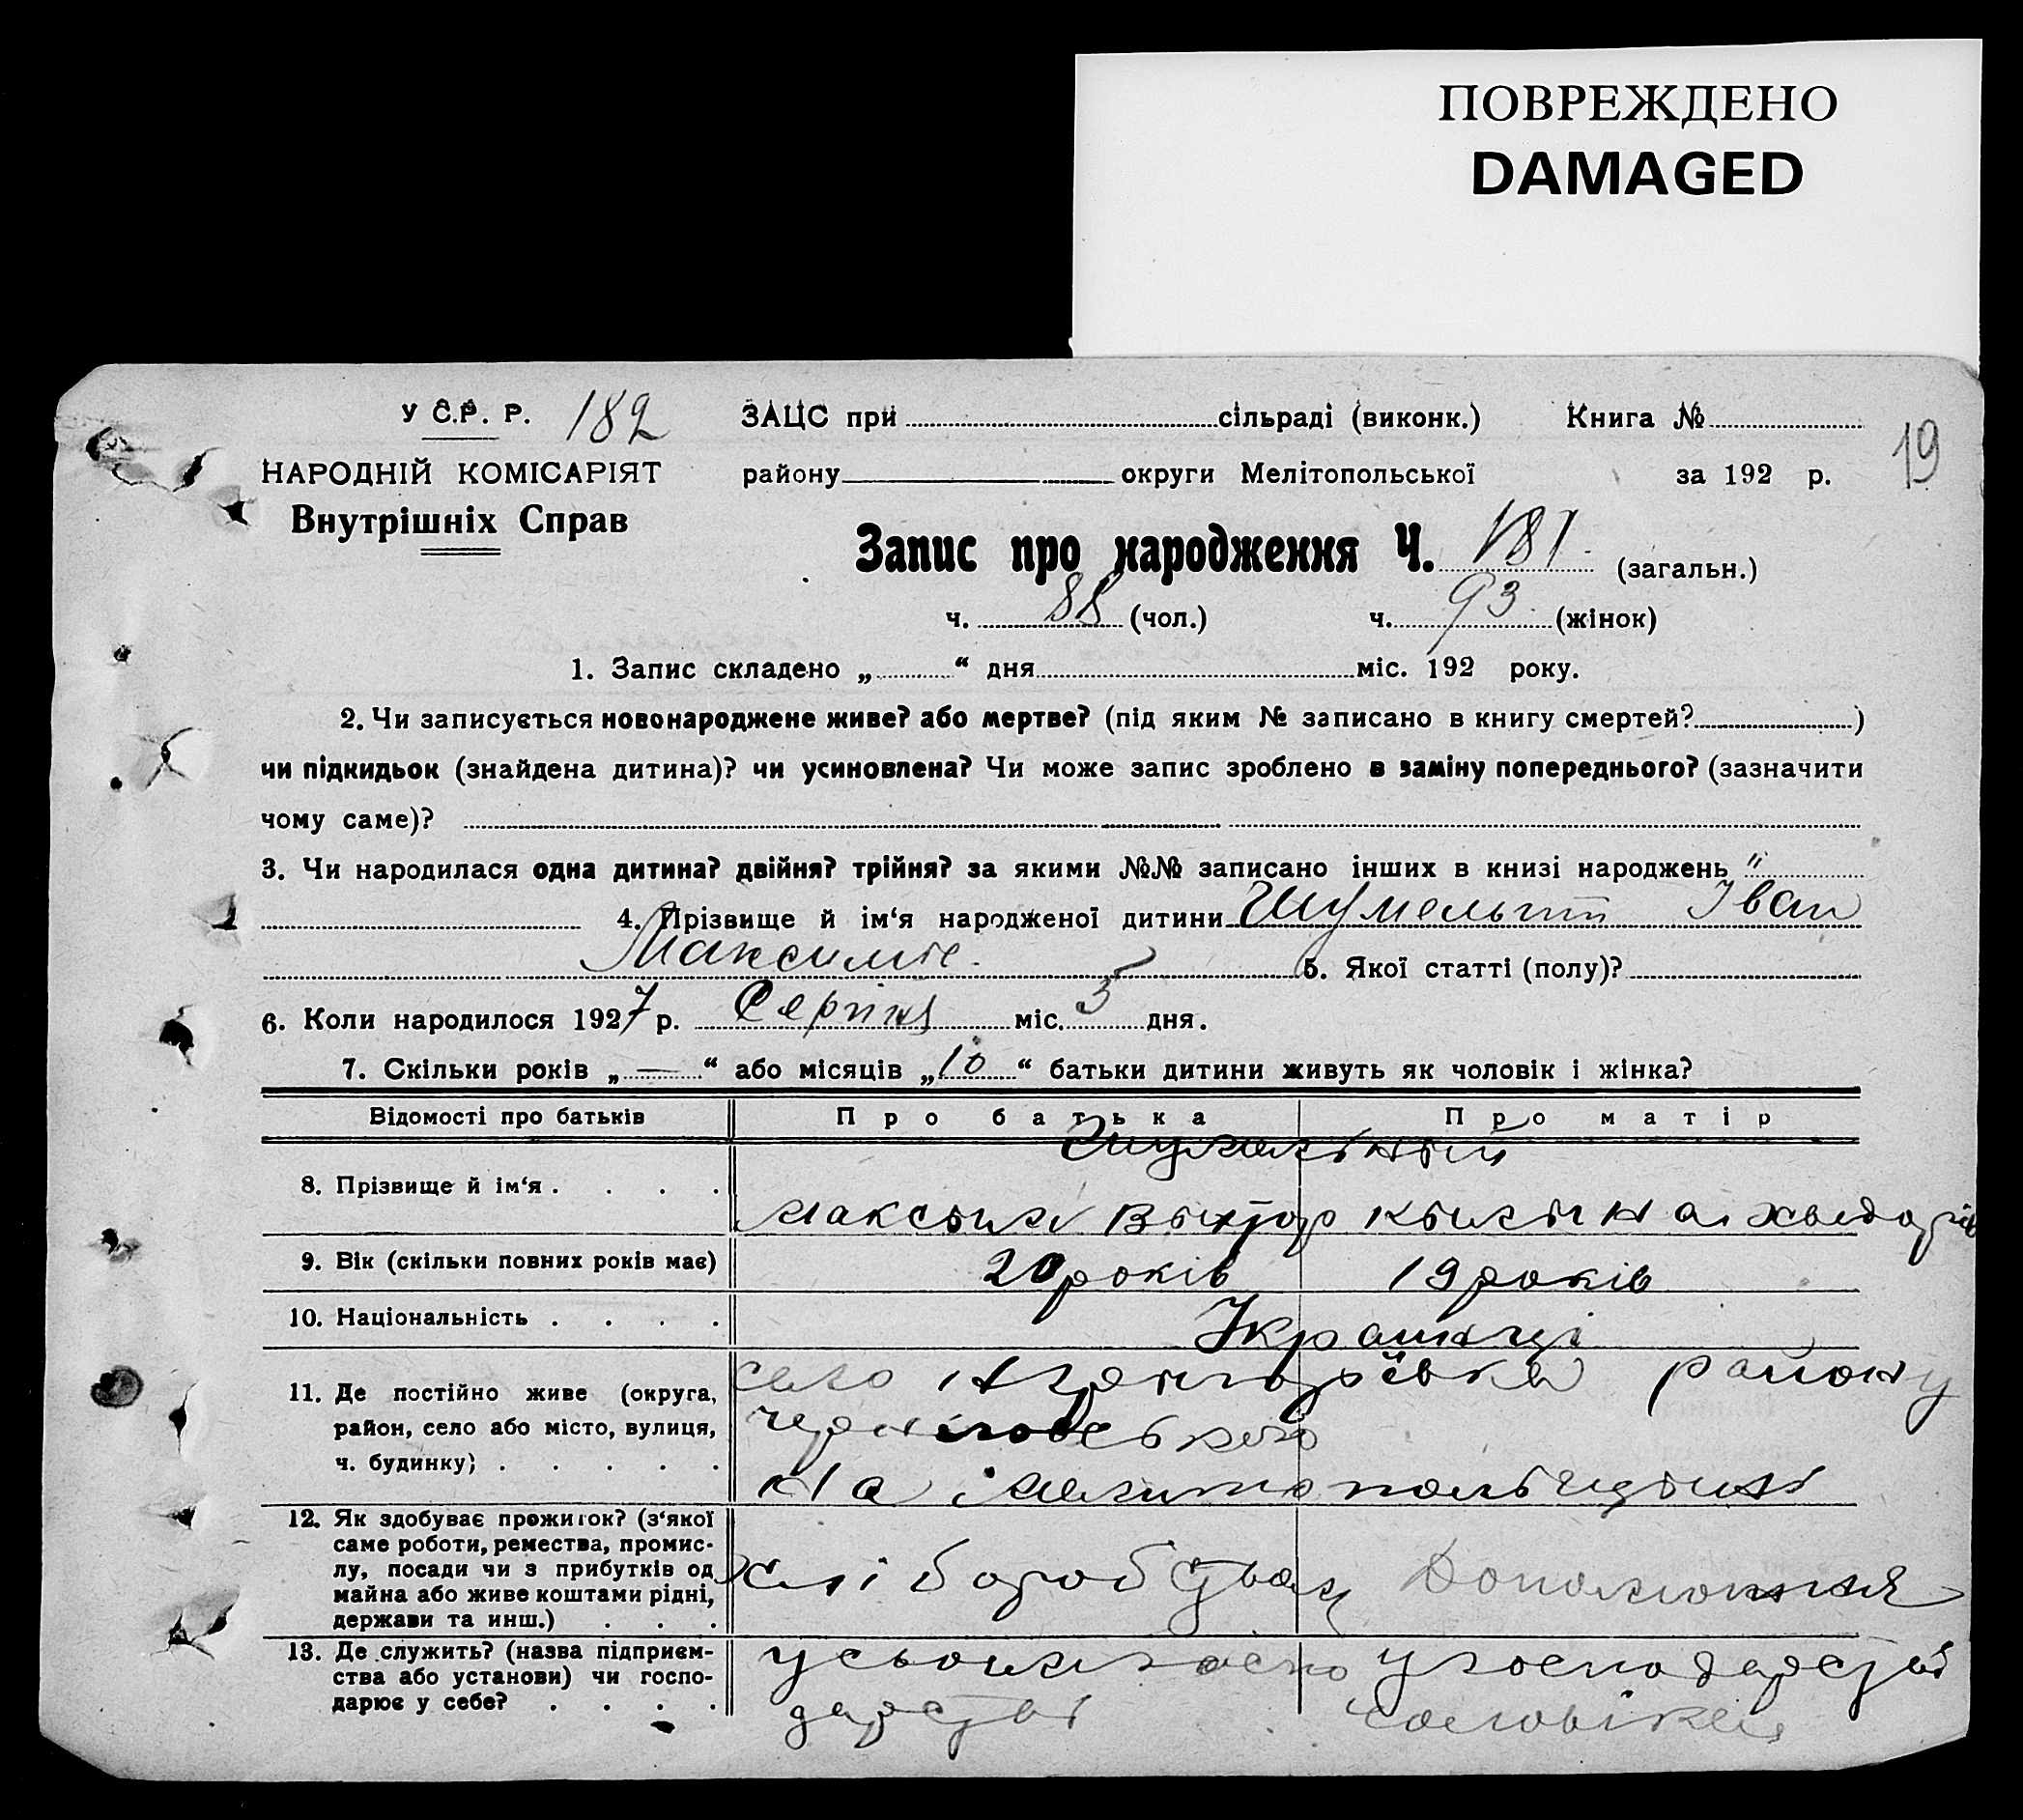 ПОВРЕЖДЕНО
DAMAGED
У С.Р. Р. 182 ЗАЦС при сільраді (виконк.) Книга №
19
НАРОДНІЙ КОМІСАРІЯТ району округи Мелітопольської за 192 р.
Внутрішніх Справ
Запис про народження Ч. 181 (загальн.)
ч. 88 (чол.) ч. 93 (жінок)
1. Запис складено „ “ дня міс. 192 року.
2. Чи записується новонароджене живе? або мертве? (під яким № записано в книгу смертей? )
чи підкидьок (знайдена дитина)? чи усиновлена? Чи може запис зроблено в заміну попереднього? (зазначити
чому саме)?
3. Чи народилася одна дитина? двійня? трійня? за якими №№ записано інших в книзі народжень "
4. Прізвище й ім‘я народженої дитини Іван
5. Якої статті (полу)?
6. Коли народилося 1927 р. Серпня міс. 5 дня.
7. Скільки років „—“ або місяців „10“ батьки дитини живуть як чоловік і жінка?
Відомості про батьків Про батька Про матір
8. Прізвище й ім‘я . . . .
9. Вік (скільки повних років має) 20 років 19 років
10. Національність . . . .
11. Де постійно живе (округа, село району
район, село або місто, вулиця,
ч. будинку) . . . . . на
12. Як здобуває прожиток? (з‘якої
саме роботи, ремества, промис-
лу, посади чи з прибутків од
майна або живе коштами рідні,
держави та инш.) . . .
13. Де служить? (назва підприєм-
ства або установи) чи госпо- у господарстві
дарює у себе? . . . .